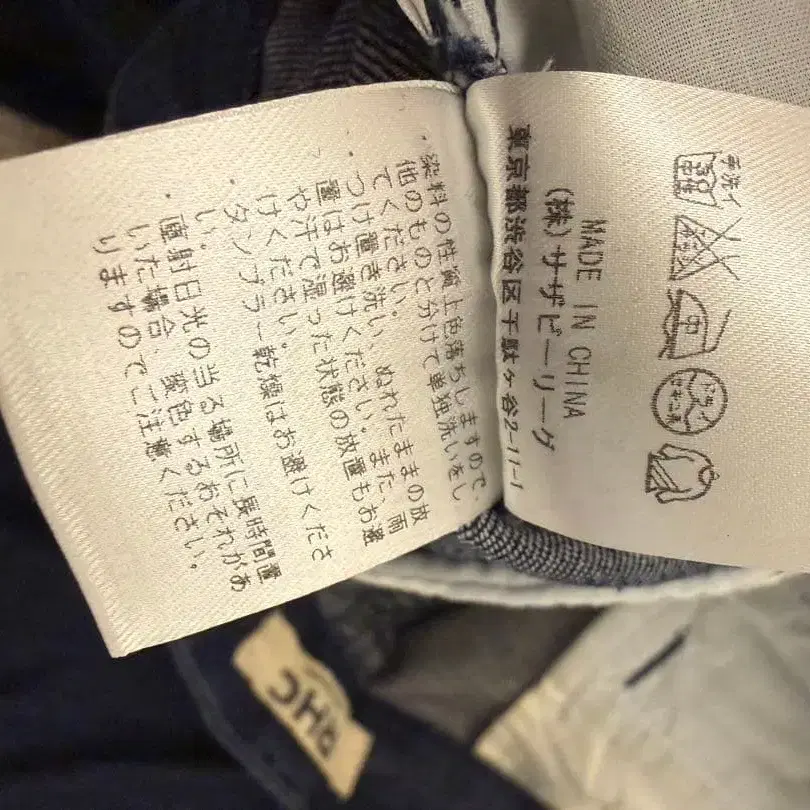 手洗イ
30
中性
エンソサラシ
中
ドライ
セキユ系
MADE IN CHINA
(株)サザビーリーグ
東京都渋谷区千駄ヶ谷2-11-1
・染料の性質上色落ちしますので、
他のものと分けて単独洗いをし
てください。
つけ置き洗い、ぬれたままの放
置はお避けください。また、雨
や汗で湿った状態の放置もお避
けください。
・タンブラー乾燥はお避けくださ
い。
・直射日光の当る場所に長時間置
いた場合、変色するおそれがあ
りますのでご注意ください。
RHC